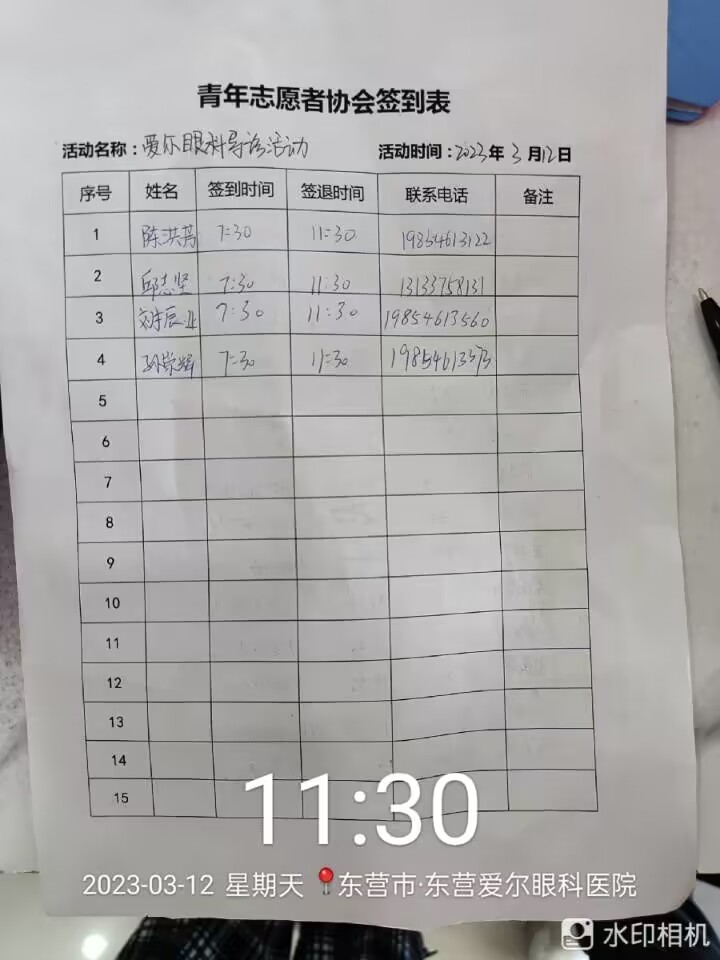 青年志愿者协会签到表
活动名称：爱尔眼科导诊活动 活动时间：2023年3月12日
序号 姓名 签到时间 签退时间 联系电话 备注
1 陈洪 7:30 11:30 19854613122
2 邱志坚 7:30 11:30 13133758131
3 刘辰业 7:30 11:30 19854613560
4 孙荣辉 7:30 11:30 19854613573
5
6
7
8
9
10
11
12
13
14
15
11:30
2023-03-12 星期天 东营市·东营爱尔眼科医院
水印相机